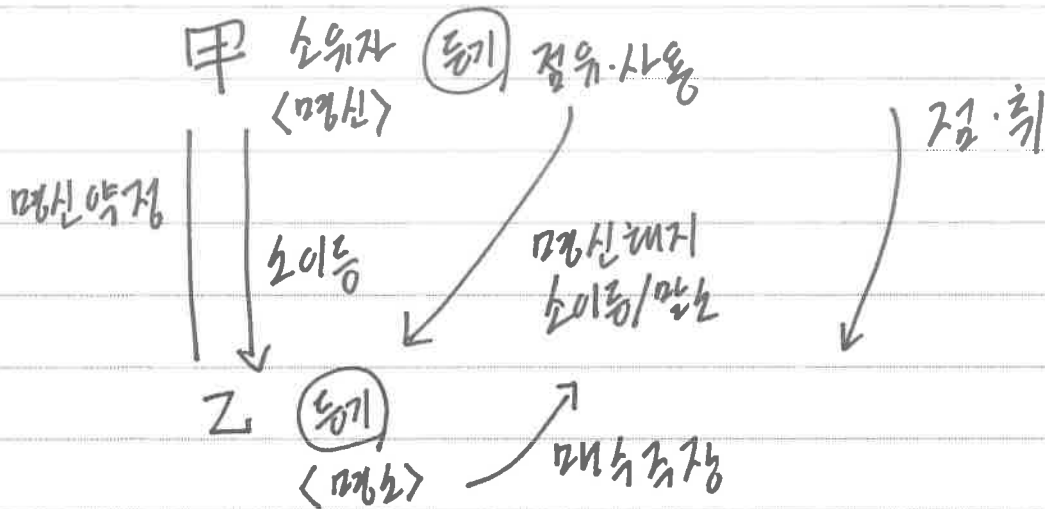 甲 소유자 등기 점유·사용
<명신>
점·취
명신약정
소이등
명신해지
소이등/말소
乙 등기
<명소>
매수주장